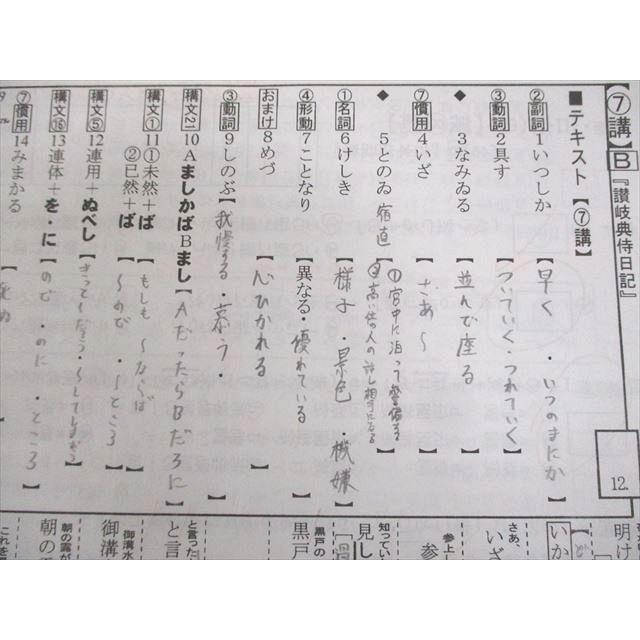 ⑦講 B 『讃岐典侍日記』
12.
■テキスト【⑦講】
②副詞 1いつしか 【早く・いつのまにか】
③動詞 2具す 【ついていく・つれていく】
◆ 3なみゐる 【並んで座る】
⑦慣用 4いざ 【さあ〜】
◆ 5とのゐ 宿直 【①宮中に泊って警備する
②高い位の人の話し相手になる】
①名詞 6けしき 【様子・景色・機嫌】
④形動 7ことなり 【異なる・優れている】
おまけ 8めづ 【心ひかれる】
③動詞 9しのぶ 【我慢する・慕う・】
構文21 10AましかばBまし 【AだったらBだろうに】
構文① 11①未然+ば 【もしも〜ならば
②已然+ば 〜ので・〜ところ】
構文⑤ 12連用+ぬべし
構文⑯ 13連体+を・に 【ので・のに・ところ】
⑦慣用 14みまかる
明け
いか
さあ、
いざ
参上し
参
知ってい
見し
黒戸の
黒戸
と言った
と言
御溝水
御溝
朝の霧が
朝の
これを